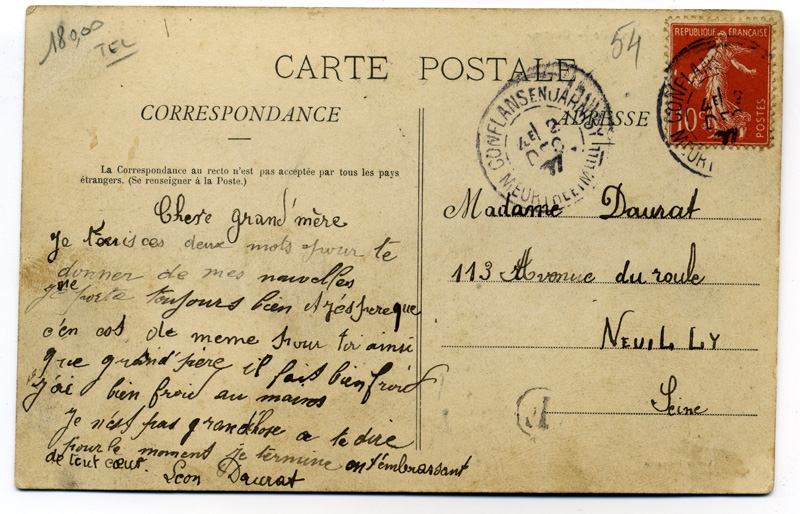 180,00
TEL
54
CARTE POSTALE
REPUBLIQUE FRANÇAISE
10 c
POSTES
CORRESPONDANCE
ADRESSE
CONFLANS EN JARNISY
4E 2
MEURTHE ET M
CONFLANS
4E 2
La Correspondance au recto n'est pas acceptée par tous les pays
étrangers. (Se renseigner à la Poste.)
Chere grand'mère
Je t'ecris ces deux mots pour te
donner de mes nouvelles
je me porte toujours bien et j'éspere que
c'en est de meme pour toi ainsi
que grand'père il fait bien froid
j'ai bien froid au mains
Je n'est pas grand chose a te dire
pour le moment je termine en t'embrassant
de tout cœur.
Leon Daurat
Madame Daurat
113 Avenue du roule
NEUILLY
Seine